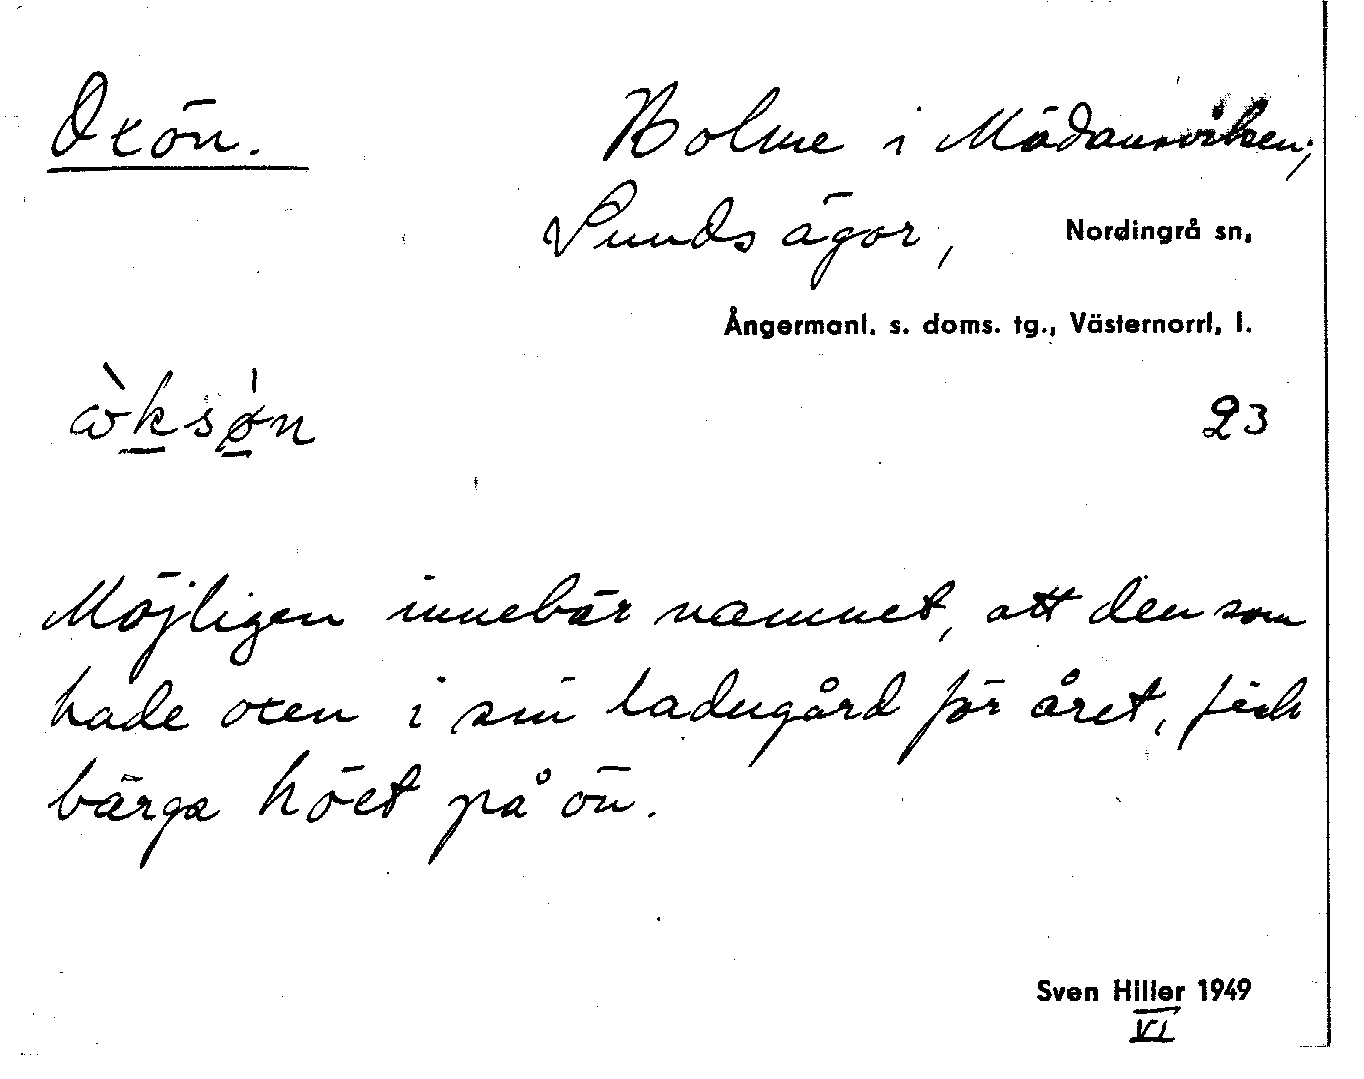 Oxön.
Holme i Mädansviken,
Sunds ägor, Nordingrå sn,
Ångermanl. s. doms. tg., Västernorrl. l.
ὼksø̀n 23
Möjligen innebär namnet, att den som
hade oxen i sin ladugård för året, fick
bärga höet på ön.
Sven Hiller 1949
VI